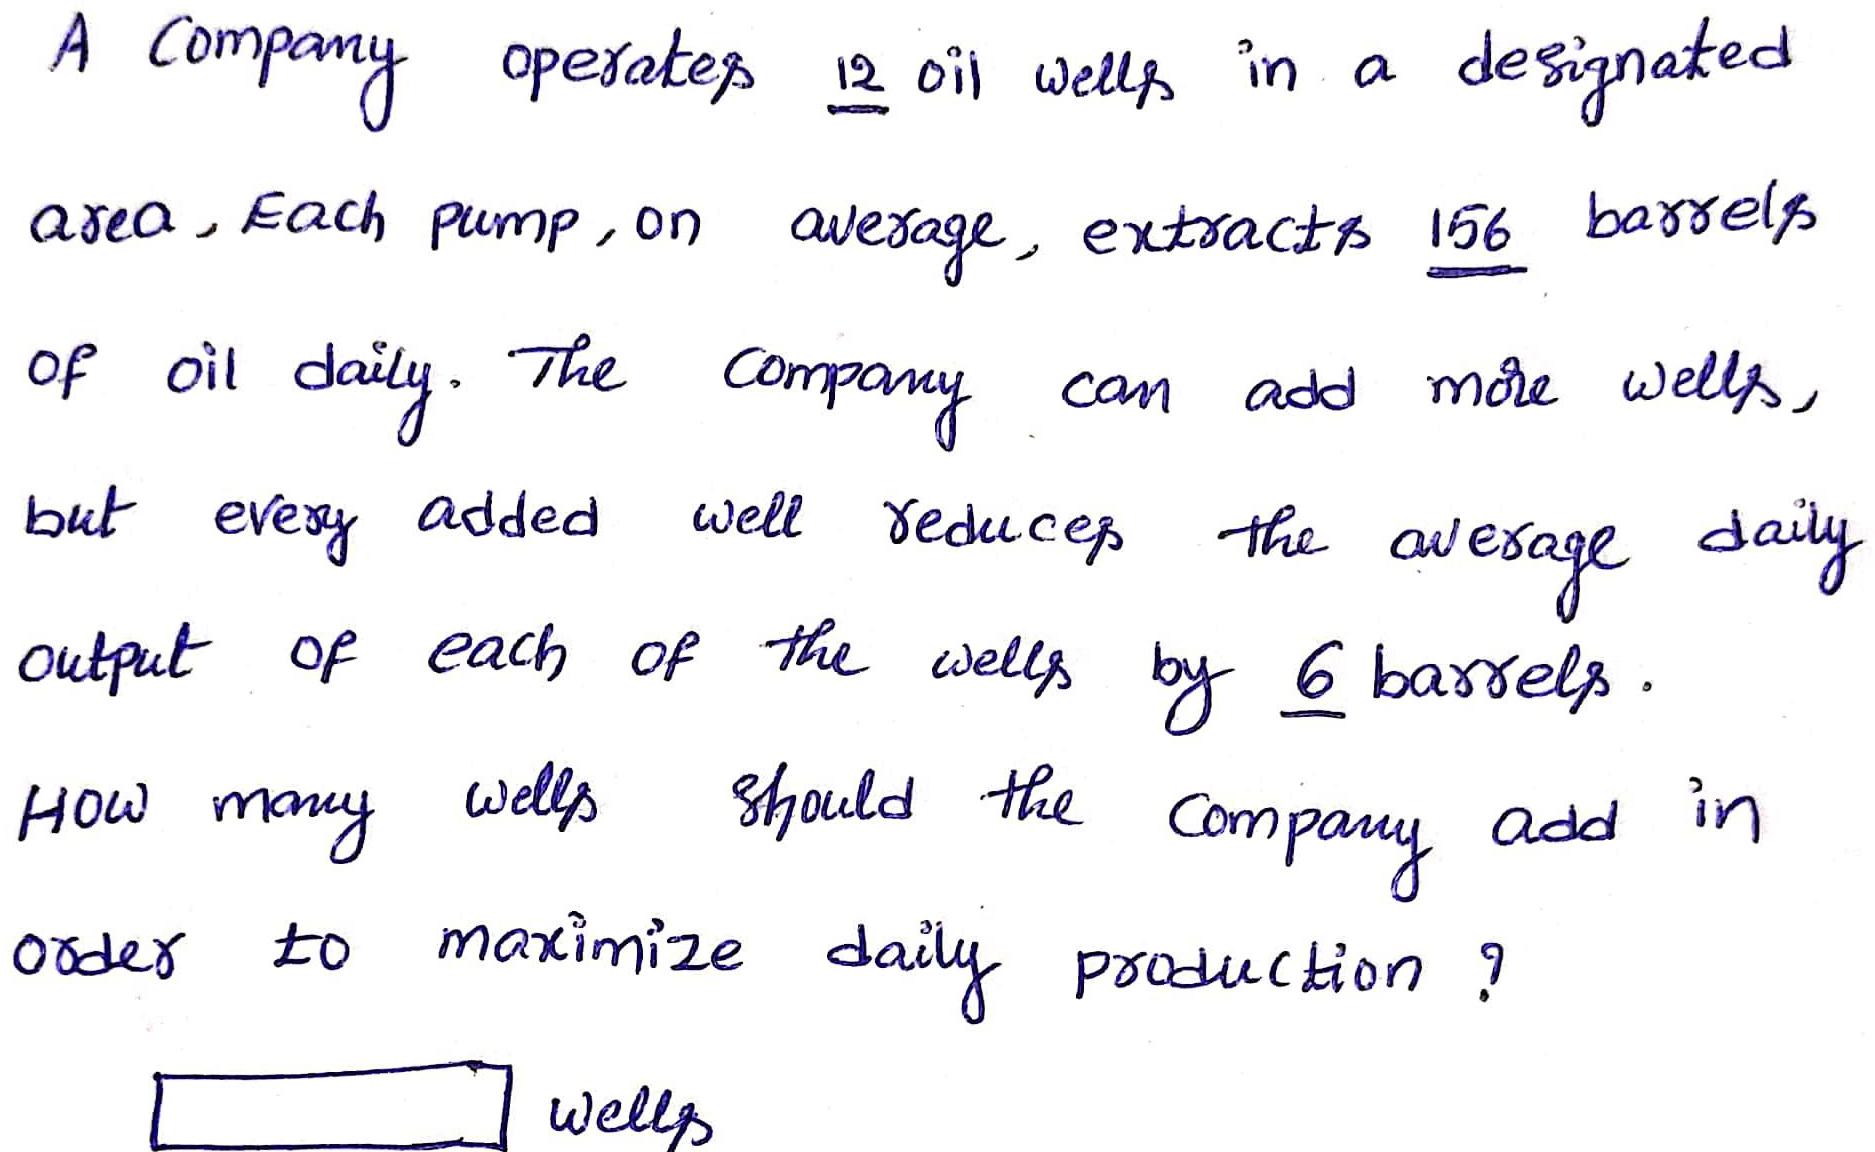 A Company operates 12 oil wells in a designated
area, Each pump, on average, extracts 156 barrels
of oil daily. The Company can add more wells,
but every added well reduces the average daily
output of each of the wells by 6 barrels.
How many wells should the Company add in
order to maximize daily production ?
wells